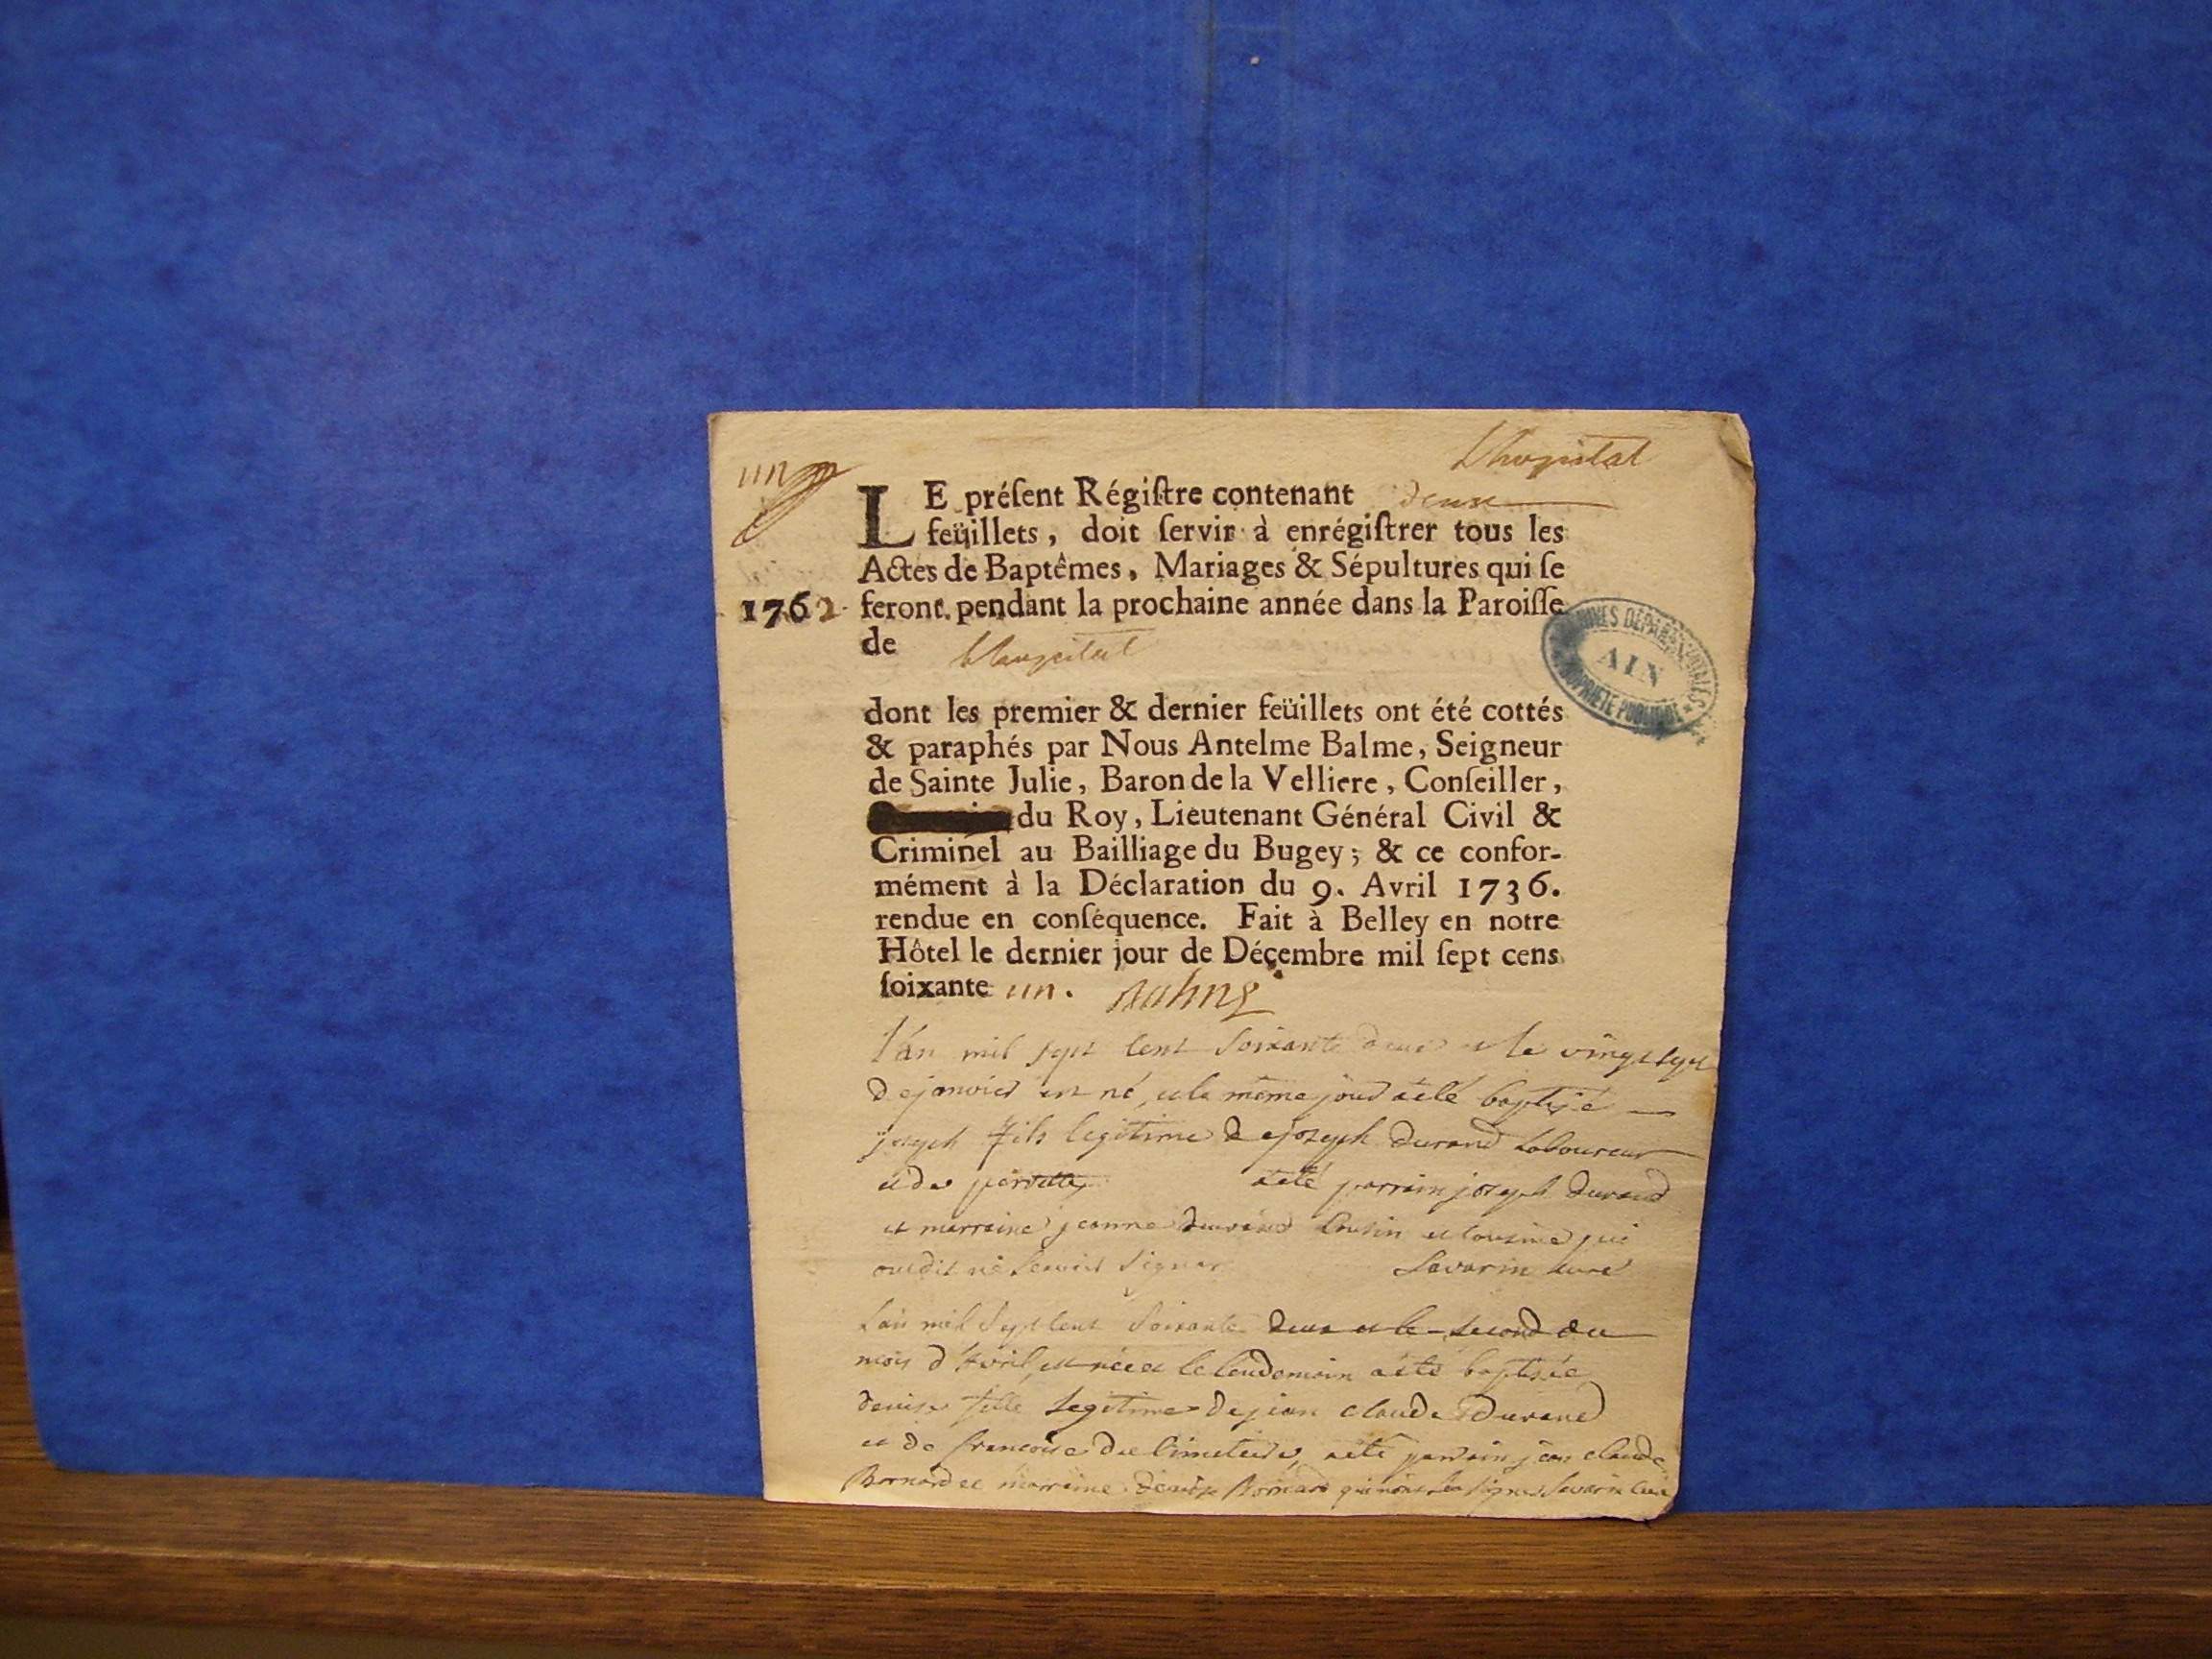 Lhopital
un
LE préſent Régiſtre contenant deux
feüillets, doit ſervir à enrégiſtrer tous les
Actes de Baptêmes, Mariages & Sépultures qui ſe
1762. feront pendant la prochaine année dans la Paroiſſe
de Lhaupital
ARCHIVES DÉPARTEMENTALES
AIN
PROPRIÉTÉ PUBLIQUE
dont les premier & dernier feüillets ont été cottés
& paraphés par Nous Antelme Balme, Seigneur
de Sainte Julie, Baron de la Velliere, Conſeiller,
du Roy, Lieutenant Général Civil &
Criminel au Bailliage du Bugey; & ce confor-
mément à la Déclaration du 9. Avril 1736.
rendue en conſéquence. Fait à Belley en notre
Hôtel le dernier jour de Décembre mil ſept cens
ſoixante un.
l'an mil sept cent soixante deux et le vingt sept
de janvier est né, et le même jour a eté baptisé
joseph fils legitime de joseph durand laboureur
et de pervette a eté parrain joseph durand
et marraine jeanne durand cousin et cousine qui
ont dit ne scavoir signer Savarin curé
L'an mil sept cent soixante deux et le second du
mois d'avril, est née et le lendemain a eté baptisée
denise fille legitime de jean claude durand
et de francoise du cimetiere, a eté parrain jean claude
Bornard et marraine denise Bornard qui n'ont sçu signer Savarin curé